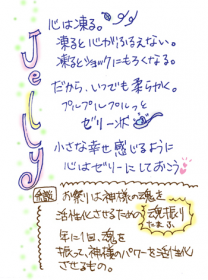 Jelly
心は凍る。
凍ると心がふるえない。
凍るとショックにもろくなる。
だから、いつでも柔らかく。
プルプルプルルっと
ゼリー状
小さな幸せ感じるように
心はゼリーにしておこう
余談
お祭りは神様の魂を
活性化させるための
魂振り
たまふり
年に1回、魂を
振って、神様のパワーを活性化
させるもの。